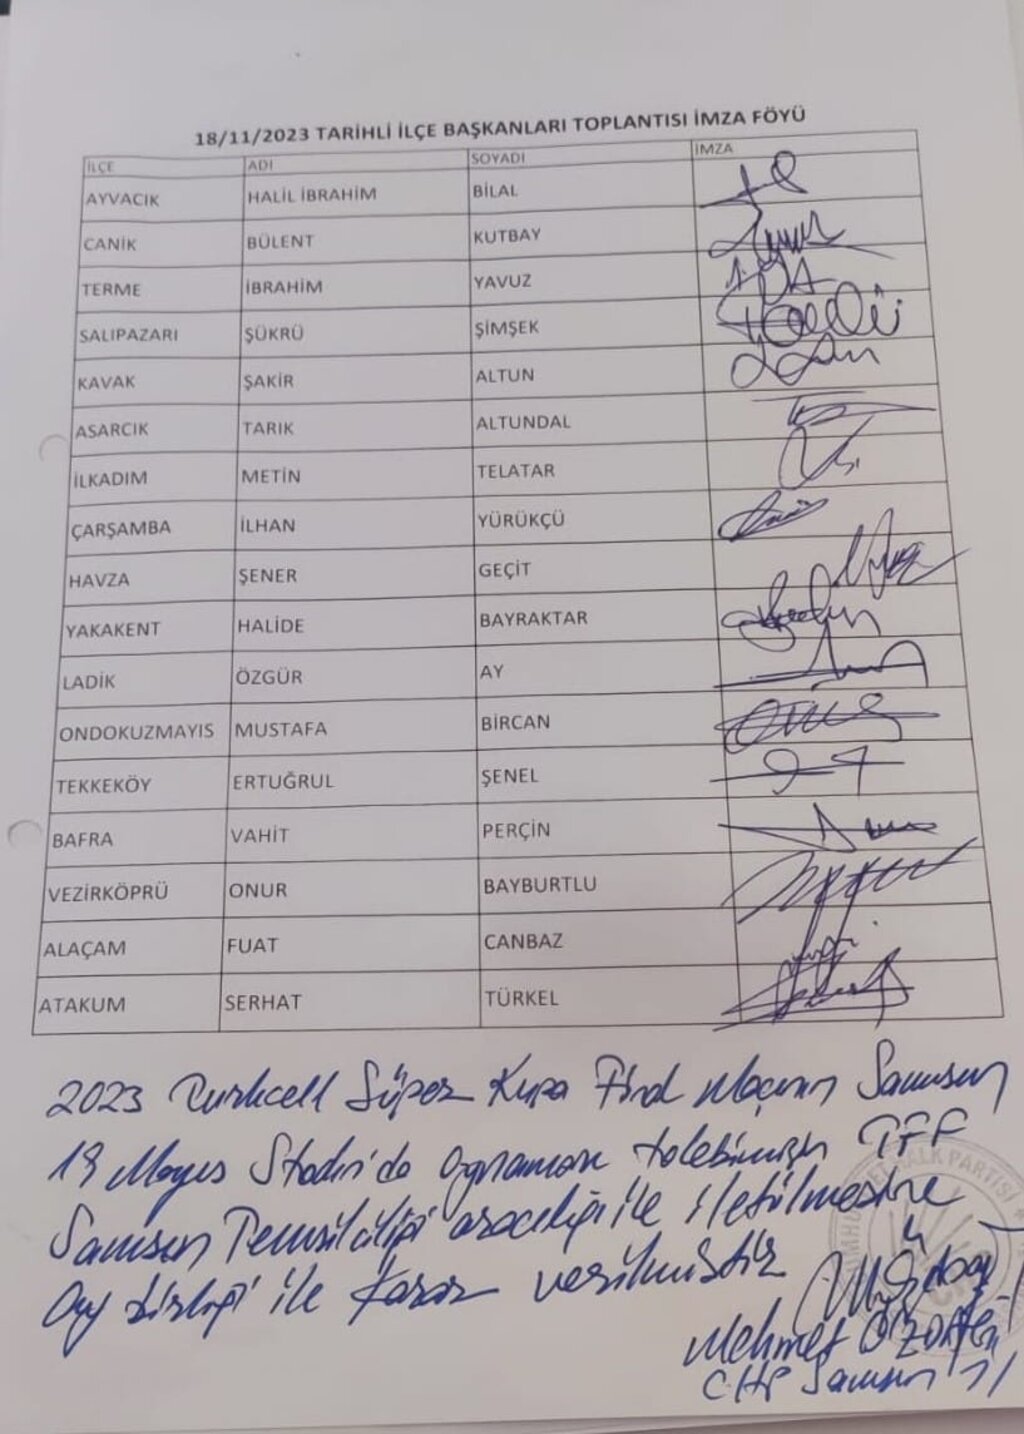 18/11/2023 TARİHLİ İLÇE BAŞKANLARI TOPLANTISI İMZA FÖYÜ
İLÇE ADI SOYADI İMZA
AYVACIK HALİL İBRAHİM BİLAL
CANİK BÜLENT KUTBAY
TERME İBRAHİM YAVUZ
SALIPAZARI ŞÜKRÜ ŞİMŞEK
KAVAK ŞAKİR ALTUN
ASARCIK TARIK ALTUNDAL
İLKADIM METİN TELATAR
ÇARŞAMBA İLHAN YÜRÜKÇÜ
HAVZA ŞENER GEÇİT
YAKAKENT HALİDE BAYRAKTAR
LADİK ÖZGÜR AY
ONDOKUZMAYIS MUSTAFA BİRCAN
TEKKEKÖY ERTUĞRUL ŞENEL
BAFRA VAHİT PERÇİN
VEZİRKÖPRÜ ONUR BAYBURTLU
ALAÇAM FUAT CANBAZ
ATAKUM SERHAT TÜRKEL
2023 Turkcell Süper Kupa Final Maçının Samsun
19 Mayıs Stadı'da oynanması talebimizin TFF
Samsun Temsilciliği aracılığı ile iletilmesine
oy birliği ile karar verilmiştir
HALK PARTİSİ
Mehmet
CHP Samsun İl